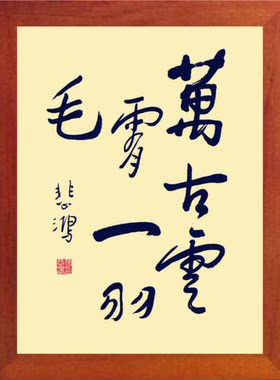 萬古雲
霄一羽
毛
悲鴻